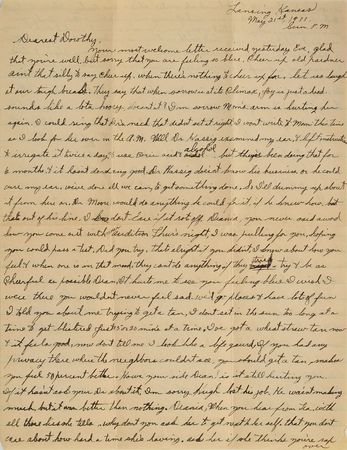 Lansing, Kansas
May 21st 1911
Sun P.M
Dearest Dorothy.
Your most welcome letter received yesterday Eve, glad
that you're well but sorry that you are feeling so blue, Cheer up old gardner
ain't that silly to say cheer up, when there's nothing to cheer up for, let us laugh
at our tough breaks. They say that when sorrow is at its Climax, joy is just ahead
sounds like a lota hooey doesn't it? I'm sorrow Mom's arm is hurting her
again. I could ring that Dr's neck that didn't set it right I won't write to Mom this time
so I look for her over in the A.M. Well Dr. Hassig examined my ear, & left instructions
to irrigate it twice a day, & use, Boric acid & alcohol but they've been doing that for
6 months & it hasn't done any good. Dr Hassig doesn't know his business, or he could
cure my ear, we've done all we can to get something done. So I'll dummy up about
it from here on. Dr. More would do anything he could for it if he knew how, but
that's out of his line. I Don't Care if it rots off. Deania, you never said a word
how you come out with Perdition There's night, I was pulling for you, hoping
you could pass a test, Did you try. That's alright if you didn't, I know about how you
felt & when one is in that mood, they can't do anything if they tried try & be as
Cheerful as possible Dean, It hurts me to see you feeling blue. I wish I
were there you wouldn't never feel sad, we'd go places & have lots of fun
I told you about me trying to get a tan, I don't set in the sun too long at a
time to get blistered just 20 or 30 min at a time, I've got a what straw tan now
& it feels good, now don't tell me I look like a life guard, If you had any
privacy there where the neighbors couldn't see, you should get a tan, makes
you feel 50 percent better. How's your side Dean, is it still hurting you
if it hasn't ask your Dr. about it, I'm sorry Hugh lost his job. He wasn't making
much, but it was better than nothing. Deania, When you hear from Iva, with
all those lies she tells, why don't you ask her to get next to her self, that you don't
care about how hard a time she's having, ask her if she thinks you're rich
over